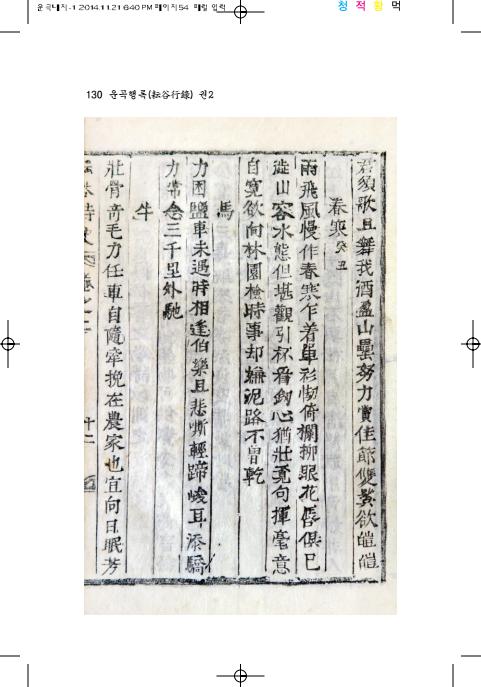 운곡행록-1 2014.11.21 6:40 PM 페이지54 매럴 입력
청 적 황 먹
130 운곡행록(耘谷行錄) 권2
君須歌且舞我酒盈山罍努力賞佳節雙鬢欲皚皚
春寒 癸丑
雨飛風慢作春寒乍着單衫怯倚欄柳眼花脣俱已
遊山容水態但堪觀引杯看劍心猶壯覓句揮毫意
自寬欲向林園檢時事却嫌泥路不曾乾
馬
力困鹽車未遇時相逢伯樂且悲嘶輕蹄峻耳添驕
力常念三千里外馳
牛
壯骨奇毛力任車自隨牽挽在農家也宜向日眠芳
十二